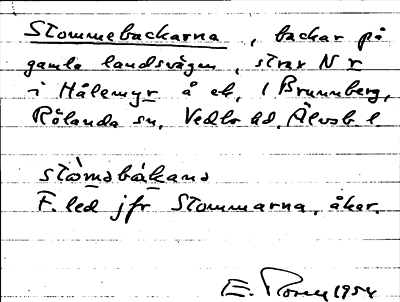 Stommebackarna, backar på
gamla landsvägen, strax N r
i Hålemyr å ek. 1 Brunnberg,
Rölanda sn, Vedbo hd, Älvsb. l.
stòmabàkana
F. led jfr Stommarna, åker.
E. 1954